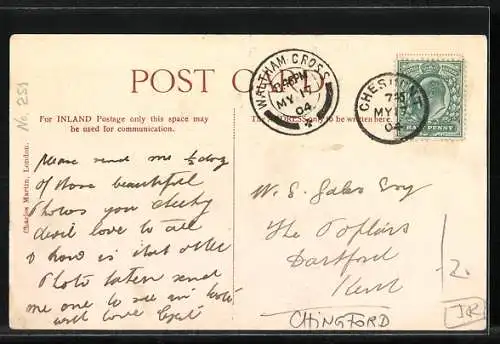 POST CARD
WALTHAM CROSS
MY 17
04
CHESHUNT
MY 17
04
HALFPENNY
No. 251
Charles Martin, London.
For INLAND Postage only this space may
be used for communication.
The ADDRESS only to be written here.
Please send me ½ doz
of those beautiful
Photos you cheeky
devil love to all
& how is that other
Photo taken send
me one to see in
with love
W. S. Gales Esq
The Poplars
Dartford
Kent
CHINGFORD
2.
JR